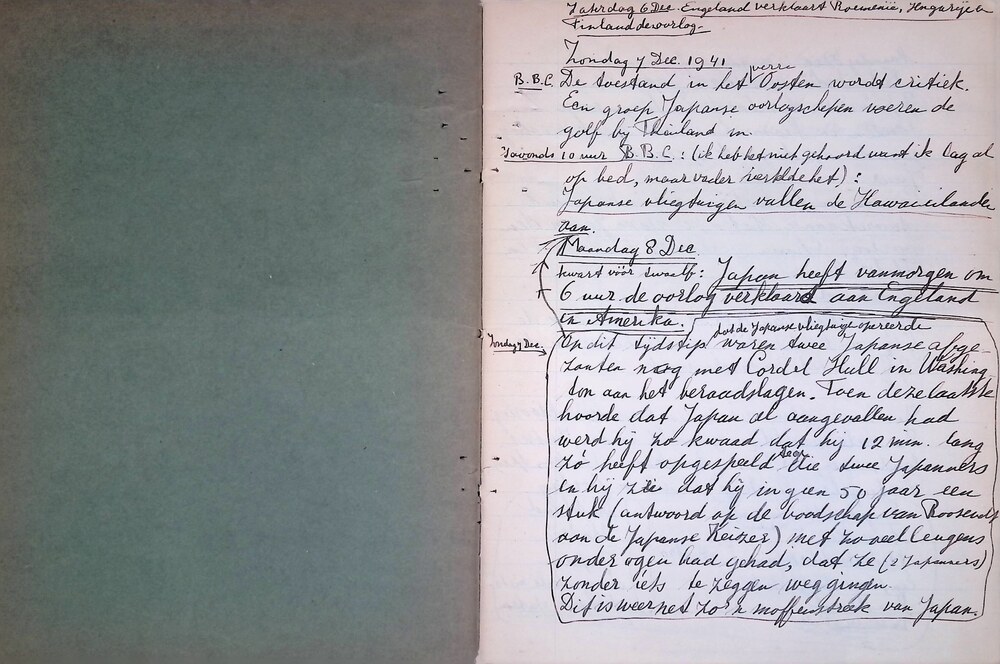 Zaterdag 6 Dec. Engeland verklaart Roemenië, Hongarije en
Finland de oorlog.
Zondag 7 Dec. 1941
B.B.C. De toestand in het verre Oosten wordt critiek.
Een groep Japanse oorlogschepen voeren de
golf by Thailand in.
's avonds 10 uur B.B.C.: (ik heb het niet gehoord want ik lag al
op bed, maar vader vertelde het):
Japanse vliegtuigen vallen de Hawaiieilanden
aan.
Maandag 8 Dec
kwart vóór twaalf: Japan heeft vanmorgen om
6 uur de oorlog verklaard aan Engeland
en Amerika.
dat de Japanse vliegtuigen opereerde
Zondag 7 Dec. Op dit tijdstip waren twee Japanse afge-
zanten nog met Cordel Hull in Washing
ton aan het beraadslagen. Toen deze laatste
hoorde dat Japan al aangevallen had
werd hij zo kwaad dat hij 12 min. lang
zó heeft opgespeeld tegen die twee Japanners
en hij zei dat hij in geen 50 jaar een
stuk (antwoord op de boodschap van Roosevelt
aan de Japanse Keizer) met zoveel leugens
onder ogen had gehad, dat ze (2 Japanners)
zonder iets te zeggen weg gingen.
Dit is weer net zo'n moffenstreek van Japan.